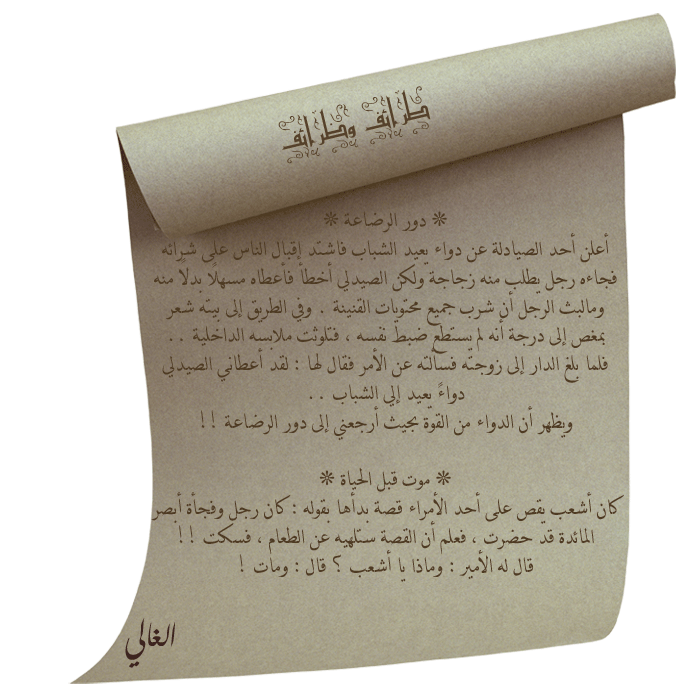 طرائف وظرائف
❊ دور الرضاعة ❊
أعلن أحد الصيادلة عن دواء يعيد الشباب فاشتد إقبال الناس على شرائه
فجاءه رجل يطلب منه زجاجة ولكن الصيدلي أخطأ فأعطاه مسهلًا بدلًا منه
ومالبث الرجل أن شرب جميع محتويات القنينة . وفي الطريق إلى بيته شعر
بمغص إلى درجة أنه لم يستطع ضبط نفسه ، فتلوثت ملابسه الداخلية . .
فلما بلغ الدار إلى زوجته فسألته عن الأمر فقال لها : لقد أعطاني الصيدلي
دواءً يعيد إلي الشباب . .
ويظهر أن الدواء من القوة بحيث أرجعني إلى دور الرضاعة ! !
❊ موت قبل الحياة ❊
كان أشعب يقص على أحد الأمراء قصة بدأها بقوله : كان رجل وفجأة أبصر
المائدة قد حضرت ، فعلم أن القصة ستلهيه عن الطعام ، فسكت ! !
قال له الأمير : وماذا يا أشعب ؟ قال : ومات !
الغالي